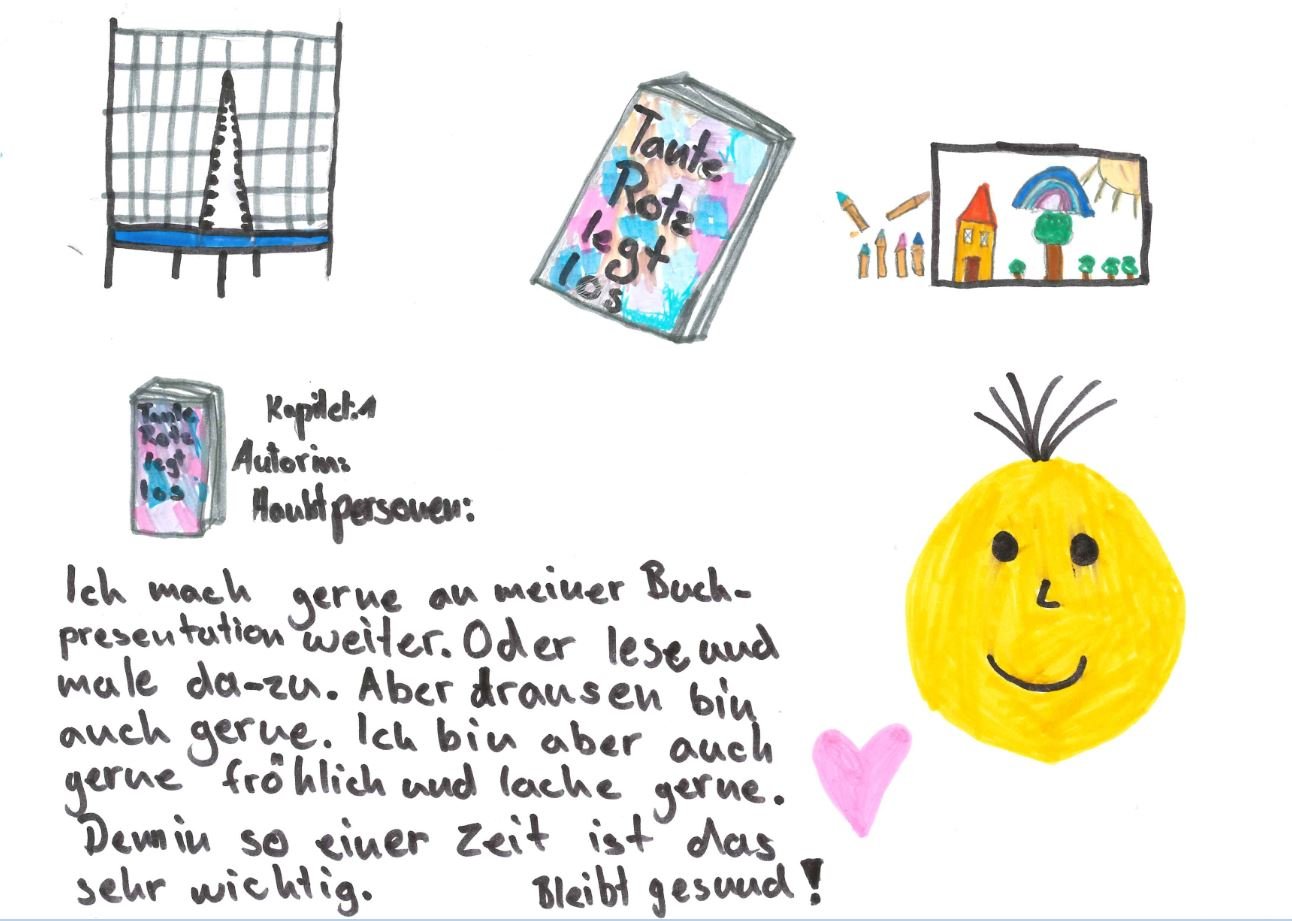 Tante
Rotz
legt
los
Tante
Rotz
legt
los
Kapitel.1
Autorin:
Haubtpersonen:
Ich mach gerne an meiner Buch-
presentation weiter. Oder lese und
male da-zu. Aber drausen bin
auch gerne. Ich bin aber auch
gerne fröhlich und lache gerne.
Denn in so einer Zeit ist das
sehr wichtig.
Bleibt gesund!